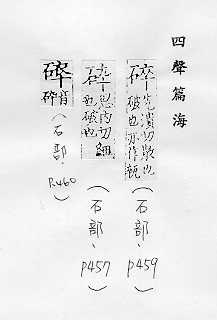 四聲篇海
碎先潰切散也
破也亦作𥻦
(石部、P459)
砕思內切細
也破也
(石部、P457)
碎音
碎
(石部、P460)